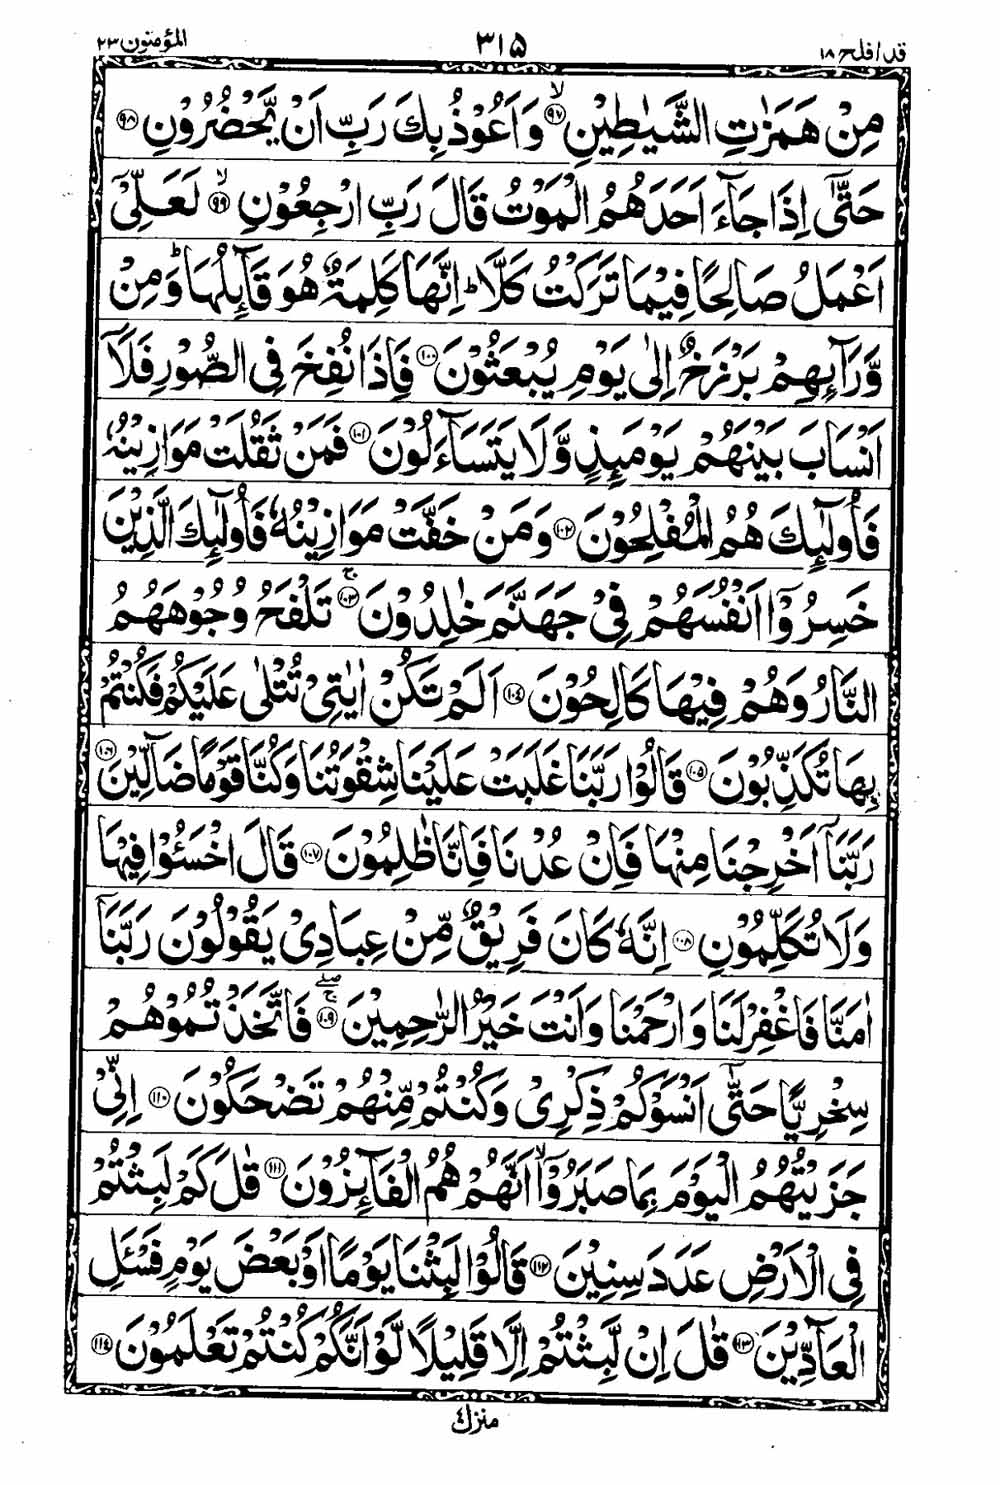 قد افلح ۱۸ ۳۱۵ المؤمنون ۲۳
مِنْ هَمَزٰتِ الشَّيٰطِيْنِ ۙ﴿۹۷﴾ وَاَعُوْذُ بِكَ رَبِّ اَنْ يَّحْضُرُوْنِ ﴿۹۸﴾
حَتّٰۤى اِذَا جَآءَ اَحَدَهُمُ الْمَوْتُ قَالَ رَبِّ ارْجِعُوْنِ ۙ﴿۹۹﴾ لَعَلِّىْۤ
اَعْمَلُ صَالِحًا فِيْمَا تَرَكْتُ كَلَّا ؕ اِنَّهَا كَلِمَةٌ هُوَ قَآئِلُهَا ؕ وَمِنْ
وَّرَآئِهِمْ بَرْزَخٌ اِلٰى يَوْمِ يُبْعَثُوْنَ ﴿۱۰۰﴾ فَاِذَا نُفِخَ فِى الصُّوْرِ فَلَاۤ
اَنْسَابَ بَيْنَهُمْ يَوْمَئِذٍ وَّلَا يَتَسَآءَلُوْنَ ﴿۱۰۱﴾ فَمَنْ ثَقُلَتْ مَوَازِيْنُهٗ
فَاُولٰٓئِكَ هُمُ الْمُفْلِحُوْنَ ﴿۱۰۲﴾ وَمَنْ خَفَّتْ مَوَازِيْنُهٗ فَاُولٰٓئِكَ الَّذِيْنَ
خَسِرُوْۤا اَنْفُسَهُمْ فِىْ جَهَنَّمَ خٰلِدُوْنَ ۚ﴿۱۰۳﴾ تَلْفَحُ وُجُوْهَهُمُ
النَّارُ وَهُمْ فِيْهَا كَالِحُوْنَ ﴿۱۰۴﴾ اَلَمْ تَكُنْ اٰيٰتِىْ تُتْلٰى عَلَيْكُمْ فَكُنْتُمْ
بِهَا تُكَذِّبُوْنَ ﴿۱۰۵﴾ قَالُوْا رَبَّنَا غَلَبَتْ عَلَيْنَا شِقْوَتُنَا وَكُنَّا قَوْمًا ضَآلِّيْنَ ﴿۱۰۶﴾
رَبَّنَاۤ اَخْرِجْنَا مِنْهَا فَاِنْ عُدْنَا فَاِنَّا ظٰلِمُوْنَ ﴿۱۰۷﴾ قَالَ اخْسَـُٔوْا فِيْهَا
وَلَا تُكَلِّمُوْنِ ﴿۱۰۸﴾ اِنَّهٗ كَانَ فَرِيْقٌ مِّنْ عِبَادِىْ يَقُوْلُوْنَ رَبَّنَاۤ
اٰمَنَّا فَاغْفِرْ لَنَا وَارْحَمْنَا وَاَنْتَ خَيْرُ الرّٰحِمِيْنَ ۚۖ﴿۱۰۹﴾ فَاتَّخَذْتُمُوْهُمْ
سِخْرِيًّا حَتّٰۤى اَنْسَوْكُمْ ذِكْرِىْ وَكُنْتُمْ مِّنْهُمْ تَضْحَكُوْنَ ﴿۱۱۰﴾ اِنِّىْ
جَزَيْتُهُمُ الْيَوْمَ بِمَا صَبَرُوْۤا ۙ اَنَّهُمْ هُمُ الْفَآئِزُوْنَ ﴿۱۱۱﴾ قٰلَ كَمْ لَبِثْتُمْ
فِى الْاَرْضِ عَدَدَ سِنِيْنَ ﴿۱۱۲﴾ قَالُوْا لَبِثْنَا يَوْمًا اَوْ بَعْضَ يَوْمٍ فَسْـَٔلِ
الْعَآدِّيْنَ ﴿۱۱۳﴾ قٰلَ اِنْ لَّبِثْتُمْ اِلَّا قَلِيْلًا لَّوْ اَنَّكُمْ كُنْتُمْ تَعْلَمُوْنَ ﴿۱۱۴﴾
منزل ٤